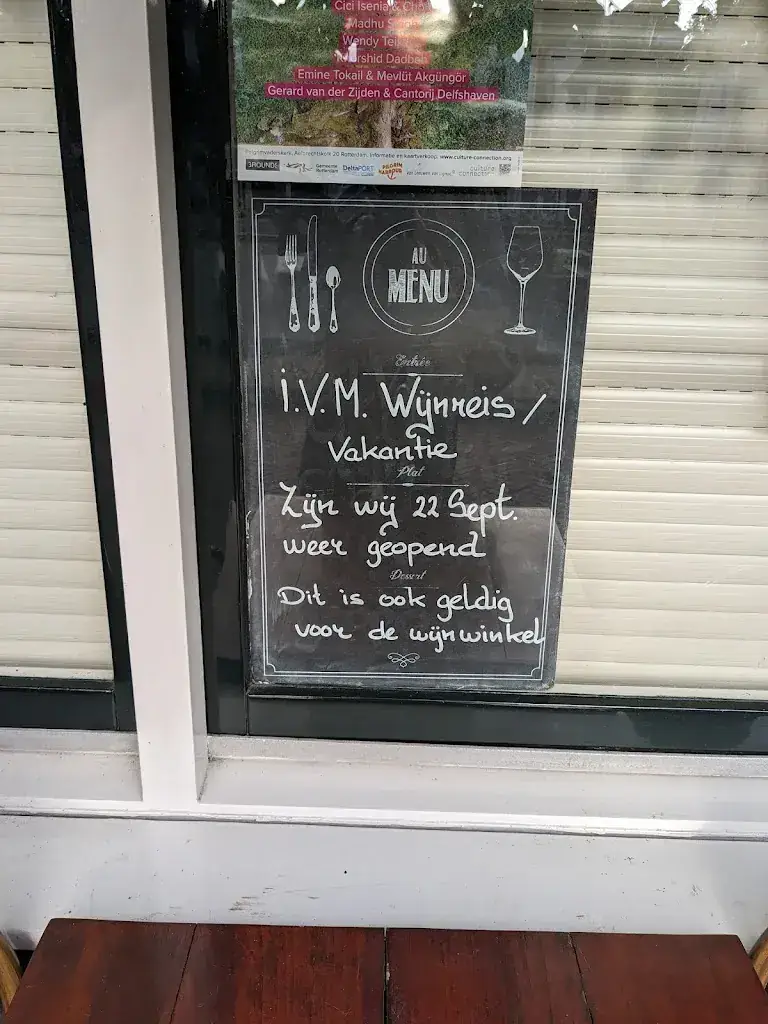 Cici Isenia &
Madhu
Wendy
Dadbeh
Emine Tokail & Mevlüt Akgüngör
Gerard van der Zijden & Cantorij Delfshaven
Pelgrimvaderskerk, Aelbrechtskolk 20 Rotterdam. Informatie en kaartverkoop: www.culture-connection.org
GROUNDS
Gemeente Rotterdam
DeltaPORT
PILGRIM HARBOUR
culture connection
AU
MENU
Entrée
i.V.M. Wijnreis /
Vakantie
Plat
Zijn wij 22 Sept.
weer geopend
Dessert
Dit is ook geldig
voor de wijnwinkel